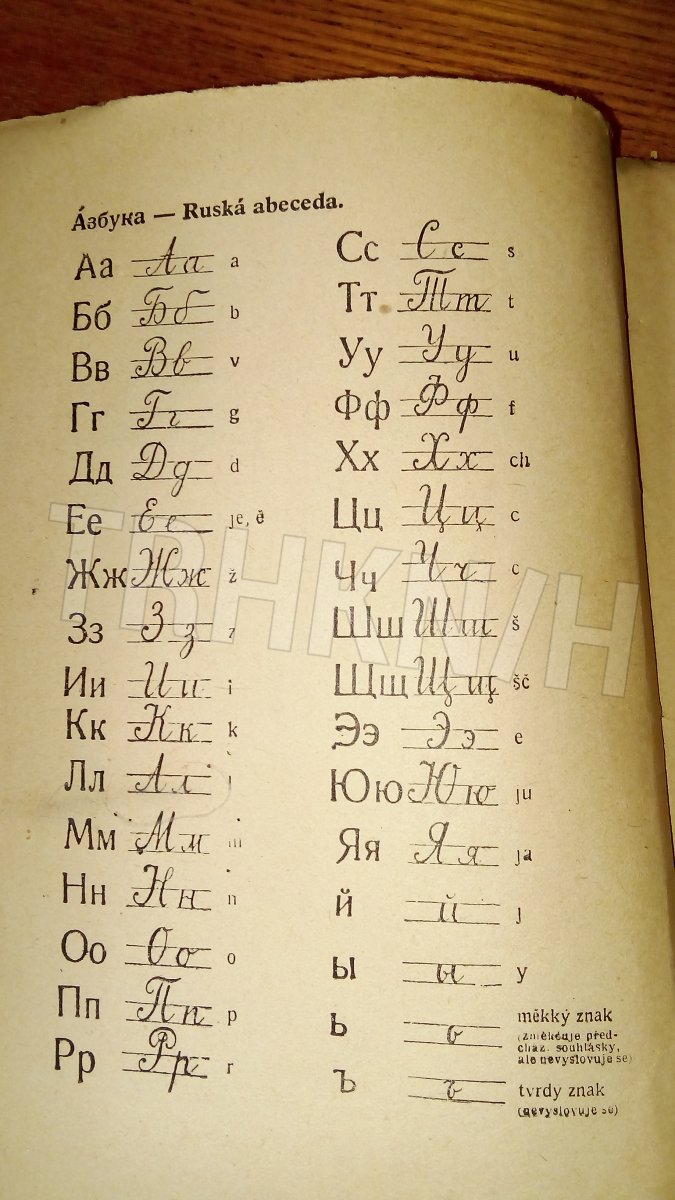 Áзбука — Ruská abeceda.
Аа Аа a
Бб Бб b
Вв Вв v
Гг Гг g
Дд Дд d
Ее Ее je, ě
Жж Жж ž
Зз Зз z
Ии Ии i
Кк Кк k
Лл Лл l
Мм Мм m
Нн Нн n
Оо Оо o
Пп Пп p
Рр Рр r
Сс Сс s
Тт Тт t
Уу Уу u
Фф Фф f
Хх Хх ch
Цц Цц c
Чч Чч c
Шш Шш š
Щщ Щщ šč
Ээ Ээ e
Юю Юю ju
Яя Яя ja
й й j
ы ы y
ь ь měkký znak
(změkčuje před-
cház. souhlásky,
ale nevyslovuje se)
ъ ъ tvrdy znak
(nevyslovuje se)
TRHKNIH